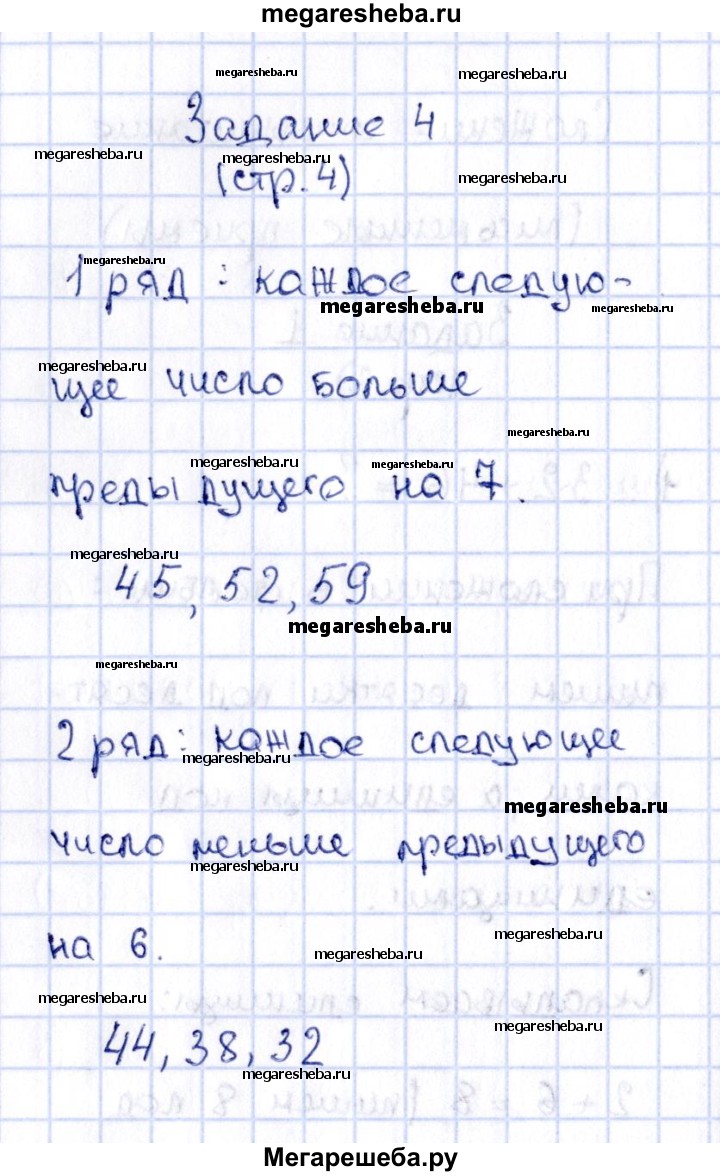 megaresheba.ru
megaresheba.ru
megaresheba.ru
Задание 4
megaresheba.ru
megaresheba.ru
(стр. 4)
megaresheba.ru
megaresheba.ru
1 ряд : каждое следую-
megaresheba.ru
megaresheba.ru
megaresheba.ru
щее число больше
megaresheba.ru
megaresheba.ru
megaresheba.ru
предыдущего на 7.
megaresheba.ru
45, 52, 59
megaresheba.ru
megaresheba.ru
2 ряд: каждое следующее
megaresheba.ru
megaresheba.ru
число меньше предыдущего
megaresheba.ru
на 6.
megaresheba.ru
megaresheba.ru
megaresheba.ru
megaresheba.ru
44, 38, 32
megaresheba.ru
Мегарешеба.ру